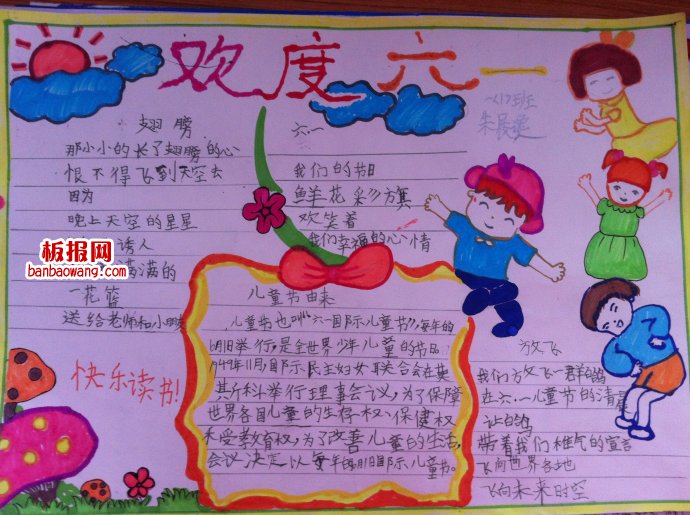 欢度六一
一(1)7班
翅膀
那小小的长了翅膀的心
恨不得飞到天空去
因为
晚上天空的星星
诱人
满满的
一花篮
送给老师和小朋
六一
我们的节日
鲜花彩旗
欢笑着
我们幸福的心情
板报网
banbaowang.com
快乐读书!
儿童节由来
儿童节也叫"六一国际儿童节",每年的
6月1日举行,是全世界少年儿童的节日。
1949年11月国际民主妇女联合会在莫
斯科举行理事会议,为了保障
世界各国儿童的生存权、保健权
和受教育权,为了改善儿童的生活,
会议决定以每年的6月1日国际儿童节。
放飞
我们放飞一群白鸽
在六一儿童节的清晨
让白鸽
带着我们稚气的宣言
飞向世界各地
飞向未来时空